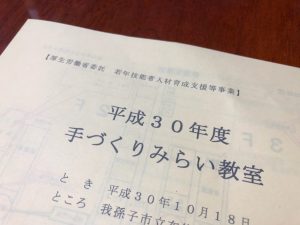 【厚生労働省委託 若年技能者人材育成支援等事業】
平成30年度
手づくりみらい教室
とき 平成30年10月18日
ところ 我孫子市立